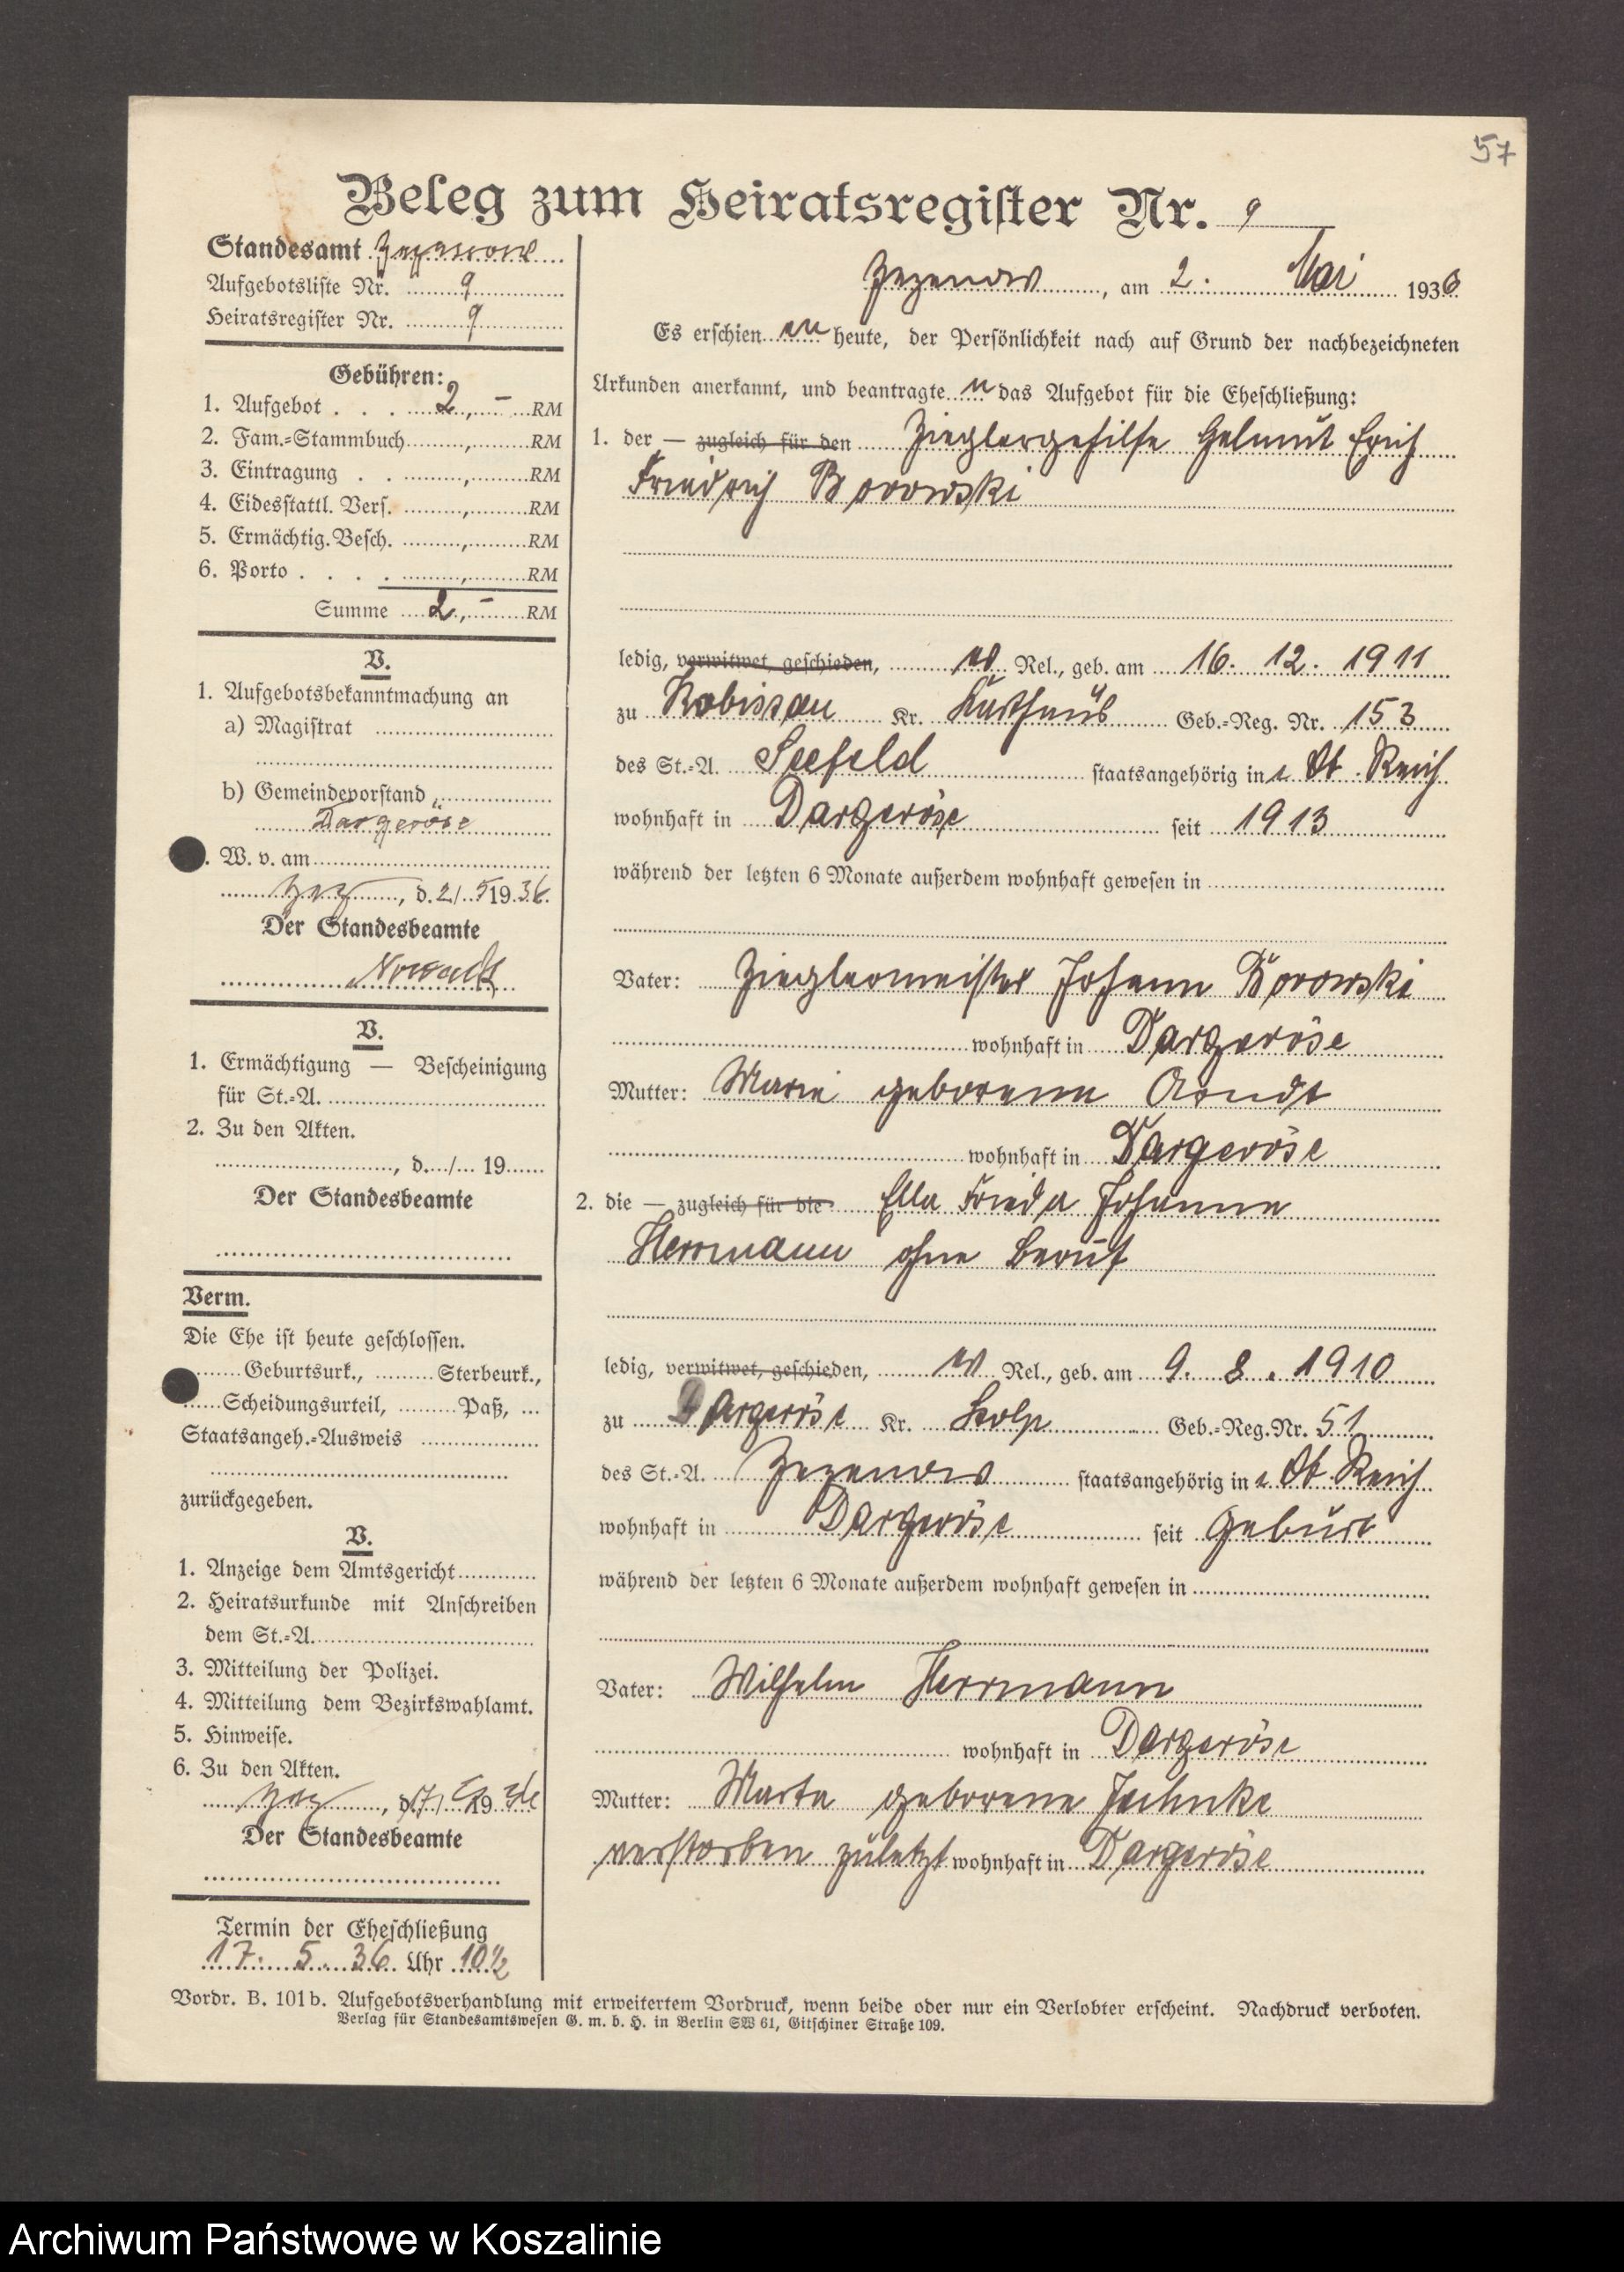 57
Beleg zum Heiratsregister Nr. 9
Standesamt Zezenow
Aufgebotsliste Nr. 9
Heiratsregister Nr. 9
Gebühren:
1. Aufgebot . . . 2,– RM
2. Fam.-Stammbuch , RM
3. Eintragung . . , RM
4. Eidesstattl. Vers. , RM
5. Ermächtig. Besch. , RM
6. Porto . . . . , RM
Summe 2,– RM
V.
1. Aufgebotsbekanntmachung an
a) Magistrat
b) Gemeindevorstand
Dargeröse
. W. v. am
Zez , d. 2/. 5 19 36.
Der Standesbeamte
V.
1. Ermächtigung — Bescheinigung
für St.-A.
2. Zu den Akten.
, d. / 19
Der Standesbeamte
Verm.
Die Ehe ist heute geschlossen.
Geburtsurk., Sterbeurk.,
Scheidungsurteil, Paß, ...
Staatsangeh.-Ausweis
zurückgegeben.
V.
1. Anzeige dem Amtsgericht
2. Heiratsurkunde mit Anschreiben
dem St.-A.
3. Mitteilung der Polizei.
4. Mitteilung dem Bezirkswahlamt.
5. Hinweise.
6. Zu den Akten.
Zez , d. 17/ 5 19 36
Der Standesbeamte
Termin der Eheschließung
17. 5. 36. Uhr 10½
Zezenow , am 2. Mai 1936
Es erschien en heute, der Persönlichkeit nach auf Grund der nachbezeichneten
Urkunden anerkannt, und beantragte n das Aufgebot für die Eheschließung:
1. der — zugleich für den Zieglergehilfe Helmut Erich
Friedrich Borowski
ledig, verwitwet, geschieden, ev Rel., geb. am 16. 12. 1911
zu Kobissau Kr. Karthaus Geb.-Reg. Nr. 153
des St.-A. Seefeld staatsangehörig in Dt. Reich
wohnhaft in Dargeröse seit 1913
während der letzten 6 Monate außerdem wohnhaft gewesen in
Vater: Zieglermeister Johann Borowski
wohnhaft in Dargeröse
Mutter: Marie geborene Arndt
wohnhaft in Dargeröse
2. die — zugleich für die Ella Frieda Johanna
Herrmann ohne Beruf
ledig, verwitwet, geschieden, ev Rel., geb. am 9. 8. 1910
zu Dargeröse Kr. Stolp Geb.-Reg. Nr. 51
des St.-A. Zezenow staatsangehörig in Dt. Reich
wohnhaft in Dargeröse seit Geburt
während der letzten 6 Monate außerdem wohnhaft gewesen in
Vater: Wilhelm Herrmann
wohnhaft in Dargeröse
Mutter: Marta geborene Jahnke
verstorben zuletzt wohnhaft in Dargeröse
Vordr. B. 101b. Aufgebotsverhandlung mit erweitertem Vordruck, wenn beide oder nur ein Verlobter erscheint. Nachdruck verboten.
Verlag für Standesamtswesen G. m. b. H. in Berlin SW 61, Gitschiner Straße 109.
Archiwum Państwowe w Koszalinie